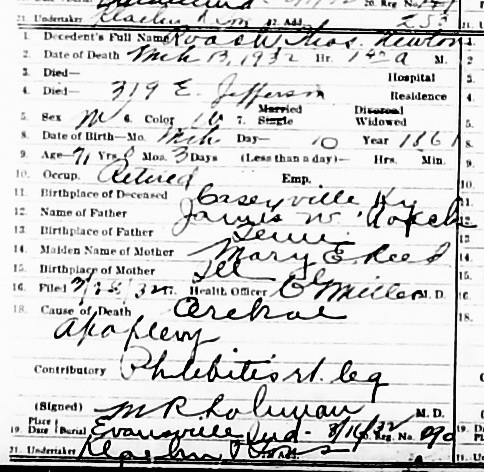 21. Undertaker 22. Add. 253
20. Reg. No.
1. Decedent's Full Name Roach Thos. Newton
2. Date of Death Mch 13, 1932 Hr. 1 a M.
3. Died— Hospital
4. Died— 319 E. Jefferson Residence
5. Sex M 6. Color W 7. Married Single Divorced Widowed
8. Date of Birth—Mo. Mch Day— 10 Year 1861
9. Age 71 Yrs. 0 Mos. 3 Days (Less than a day)— Hrs. Min.
10. Occup. Retired Emp.
11. Birthplace of Deceased Caseyville Ky
12. Name of Father James W. Roach
13. Birthplace of Father Tenn
14. Maiden Name of Mother Mary E Reed
15. Birthplace of Mother Ill
16. Filed 17. Health Officer O Miller M. D.
18. Cause of Death Cerebral
Apoplexy
Contributory Phlebitis rt. leg
(Signed) M R Lohman M. D.
19. Place Date Burial Evansville Ind— 3/16/32 20. Reg. No. 290
21. Undertaker
11.
12.
13.
14.
15.
16.
18.
19.
21.